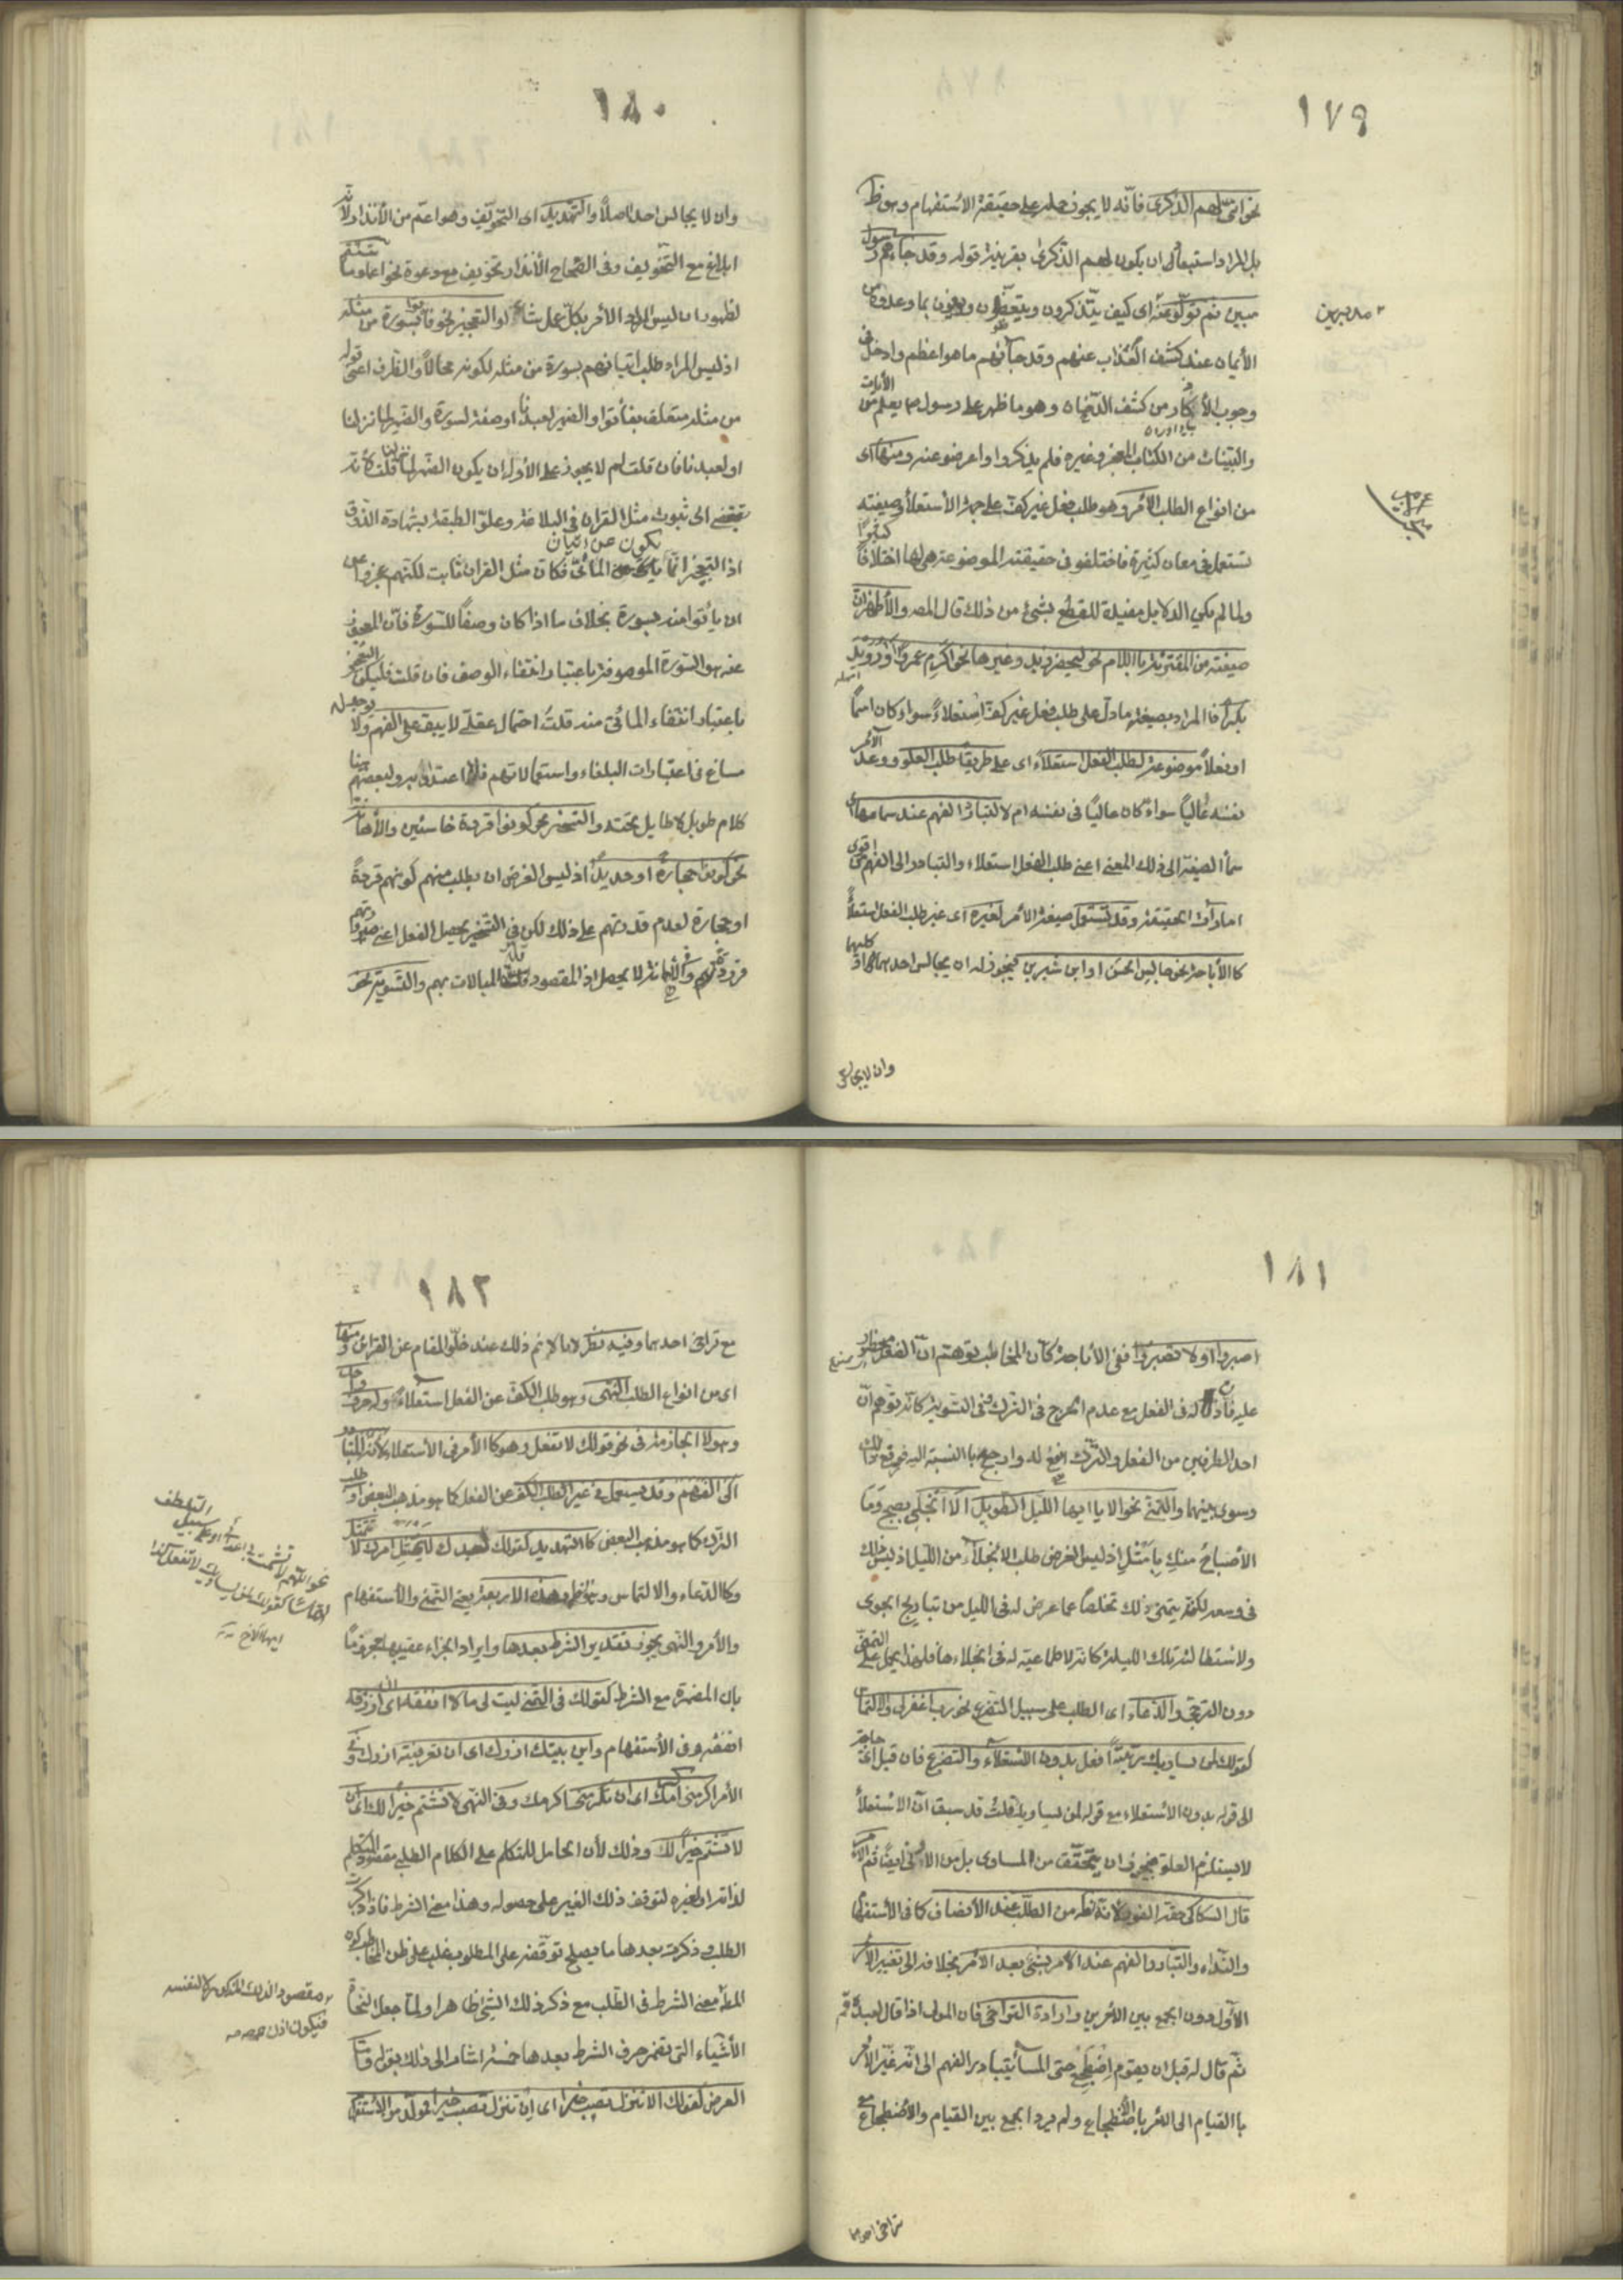 ١٧٩
نحو انى لهم الذكرى فانه لا يجوز حمله على حقيقة الاستفهام وهو ظ
بل المراد استبعاد ان يكون لهم الذكرى بقرينة قوله وقد جاءهم رسول
مبين ثم تولوا عنه اى كيف يتذكرون ويتعظون ويوفون بما وعدوه من
الأيمان عند كشف العذاب عنهم وقد جاءهم ما هو اعظم وادخل فى
وجوب الأذكار من كشف الدخان وهو ما ظهر على رسول مما يعلم من الآيات
والبينات من الكتاب المعجز وغيره فلم يذكروا واعرضوا عنه ومنها اى
من انواع الطلب الأمر وهو طلب فعل غير كف على جهة الأستعلاء وصيغته
تستعمل فى معان كثيرة فاختلفوا فى حقيقته الموضوعة هى لها اختلافا كثيرا
ولما لم يكن الدلايل مفيدة للقطع بشئ من ذلك قال المص والأظهر ان
صيغته من المقترنة باللام نحو ليحضر زيد وغيرها نحو اكرم عمروا ورويد
بكرا فالمراد بصيغته ما دل على طلب فعل غير كف استعلاء سواء كان اسما
او فعلا موضوعة لطلب الفعل استعلاء اى على طريق طلب العلو وعد الآمر
نفسه عاليا سواء كان عاليا فى نفسه ام لا لتبادر الفهم عند سماعها اى
سماع الصيغة الى ذلك المعنى اعنى طلب الفعل استعلاء والتبادر الى الفهم من اقوى
امارات الحقيقة وقد تستعمل صيغة الأمر لغيره اى غير طلب الفعل استعلاء
كا الأباحة نحو جالس الحسن او ابن سيرين فيجوز له ان يجالس احدهما او كليهما
وان لا يجالس
١٨٠
وان لا يجالس احدا اصلا والتهديد اى التخويف وهو اعم من الأنذار لأنه
ابلاغ مع التخويف وفى الصحاح الأنذار تخويف مع دعوة نحو اعملوا ما شئتم
لظهور ان ليس المراد الأمر بكل عمل شاؤا والتعجيز نحو فأتوا بسورة من مثله
اذ ليس المراد طلب اتيانهم بسورة من مثله لكونه محالا والظرف اعنى قوله
من مثله متعلق بفأتوا والضمير لعبدنا او صفة لسورة والضمير لما نزلنا
او لعبدنا فان قلت لم لا يجوز على الأول ان يكون الضمير لما نزلنا قلت لأنه
يقتضى الى ثبوت مثل القرآن فى البلاغة وعلو الطبقة بشهادة الذوق
اذ التعجيز انما يكون عن اتيان المأتى فكان مثل القرآن ثابت لكنهم عجزوا عن
ان يأتوا منه بسورة بخلاف ما اذا كان وصفا للسورة فان المعجوز
عنه هو السورة الموصوفة باعتبار انتفاء الوصف فان قلت فليكن التعجيز
باعتبار انتفاء المأتى منه قلت احتمال عقلى لا يسبق الى الفهم ولا يوجد له
مساغ فى اعتبارات البلغاء واستعمالاتهم فلا اعتداد به ولبعضهم هنا
كلام طويل لا طايل تحته والتسخير نحو كونوا قردة خاسئين والأهانة
نحو كونوا حجارة او حديدا اذ ليس الغرض ان يطلب منهم كونهم قردة
او حجارة لعدم قدرتهم على ذلك لكن فى التسخير يحصل الفعل اعنى صيرورتهم
قردة وفى الأهانة لا يحصل اذ المقصود قلة المبالات بهم والتسوية نحو
١٨١
اصبروا او لا تصبروا ففى الأباحة كأن المخاطب توهم ان الفعل محظور
عليه فأذن له فى الفعل مع عدم الحرج فى الترك وفى التسوية كأنه توهم ان
احد الطرفين من الفعل والترك انفع له وارجح بالنسبة اليه فرفع ذلك
وسوى بينهما والتمنى نحو الا يا ايها الليل الطويل الا انجلى بصبح وما
الأصباح منك بأمثل اذ ليس الغرض طلب الانجلاء من الليل اذ ليس ذلك
فى وسعه لكنه يتمنى ذلك تخلصا عما عرض له فى الليل من تباريح الجوى
ولاستطالته تلك الليلة كأنه لا طماعية له فى انجلاءها فلهذا يحمل على التمنى
دون الترجى والدعاء اى الطلب على سبيل التضرع نحو رب اغفر لى والالتماس
كقولك لمن يساويك رتبة افعل بدون الاستعلاء والتضرع فان قيل اى حاجة
الى قوله بدون الاستعلاء مع قوله لمن يساويك قلت قد سبق ان الاستعلاء
لا يستلزم العلو فيجوز ان يتحقق من المساوى بل من الأدنى ايضا ثم الأمر
قال السكاكى حقه الفور لأنه الظ من الطلب عند الأنصاف كا فى الأستفهام
والنداء والتبادر الفهم عند الأمر بشئ بعد الأمر بخلافه الى تغيير الأمر
الأول دون الجمع بين الأمرين وارادة التراخى فان المولى اذا قال لعبده قم
ثم قال له قبل ان يقوم اضطجع حتى المساء يتبادر الفهم الى انه غير الأمر
با القيام الى الأمر بالاضطجاع ولم يرد الجمع بين القيام والأضطجاع مع
تراخى احدهما
١٨٢
مع تراخى احدهما وفيه نظر لانا لا نم ذلك عند خلو المقام عن القرائن ومنها
اى من انواع الطلب النهى وهو طلب الكف عن الفعل استعلاء وله حرف واحد
وهو لا الجازمة فى نحو قولك لا تفعل وهو كا الأمر فى الأستعلاء لأنه المتبادر
الى الفهم وقد يستعمل فى غير طلب الكف عن الفعل كما هو مذهب البعض او طلب
الترك كا هو مذهب البعض كا التهديد كقولك لعبدك لا يمتثل امرك لا تمتثل
وكا الدعاء والالتماس وهو ظ وهذه الأربعة يعنى التمنى والأستفهام
والأمر والنهى يجوز تقدير الشرط بعدها وايراد الجزاء عقيبها مجزوما
بان المضمرة مع الشرط كقولك فى التمنى ليت لى مالا انفقه اى ان ارزقه
انفقه وفى الأستفهام واين بيتك ازرك اى ان تعرفنيه ازرك وفى
الأمر اكرمنى اكرمك اى ان تكرمنى اكرمك وفى النهى لا تشتم خيرا لك اى ان
لا تشتم خيرا لك وذلك لأن الحامل للمتكلم على الكلام الطلبى مقصود المتكلم
لذاته او لغيره لتوقف ذلك الغير على حصوله وهذا معنى الشرط فاذا ذكرت
الطلب وذكرت بعدها ما يصلح توقفه على المطلوب غلب على ظن المخاطب كون
المط معنى الشرط فى الطلب مع ذكر ذلك الشئ ظاهرا ولما جعل النحاة
الأشياء التى تضمر حرف الشرط بعدها خمسة اشار الى ذلك بقوله واما
العرض كقولك الا تنزل تصب خيرا اى ان تنزل تصب خيرا فمولد من الأستفهام